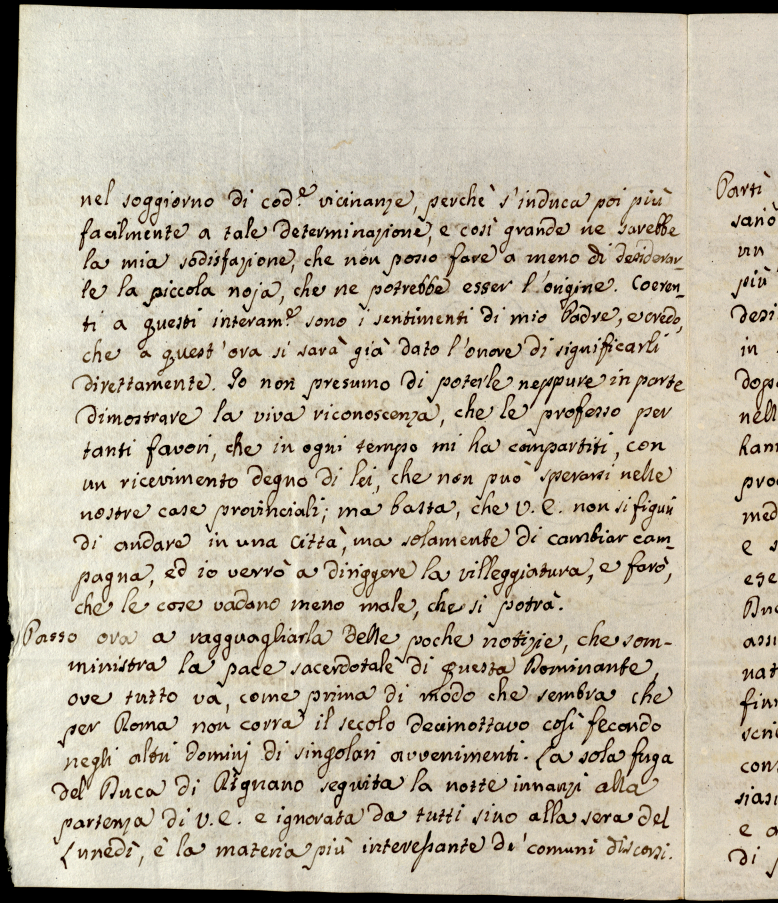 nel soggiorno di cod.e vicinanze, perchè s'induca poi più
facilmente a tale determinazione, e così grande ne sarebbe
la mia sodisfazione, che non posso fare a meno di desiderar-
le la piccola noja, che ne potrebbe esser l'origine. Coeren-
ti a questi interam.e sono i sentimenti di mio Padre, e credo,
che a quest'ora si sarà già dato l'onore di significarli
direttamente. Io non presumo di poterle neppure in parte
dimostrare la viva riconoscenza, che le professo per
tanti favori, che in ogni tempo mi ha compartiti, con
un ricevimento degno di lei, che non può sperarsi nelle
nostre case provinciali; ma basta, che V. E. non si figuri
di andare in una Città, ma solamente di cambiar cam-
pagna, ed io verrò a diriggere la villeggiatura, e farò,
che le cose vadano meno male, che si potrà.
Passo ora a ragguagliarla delle poche notizie, che som-
ministra la pace sacerdotale di questa Dominante,
ove tutto va, come prima di modo che sembra che
per Roma non corra il secolo decimottavo così fecondo
negli altri Dominj di singolari avvenimenti. La sola fuga
del Duca di Rignano seguita la notte innanzi alla
partenza di V. E. e ignorata da tutti sino alla sera del
Lunedì, è la materia più interessante de' comuni discorsi.
Partì
sano
un
più
desi
in
dopo
nell
Ram
pro
med
e s
ese
Duc
assi
nat
fin
scri
con
siasi
e a
di p